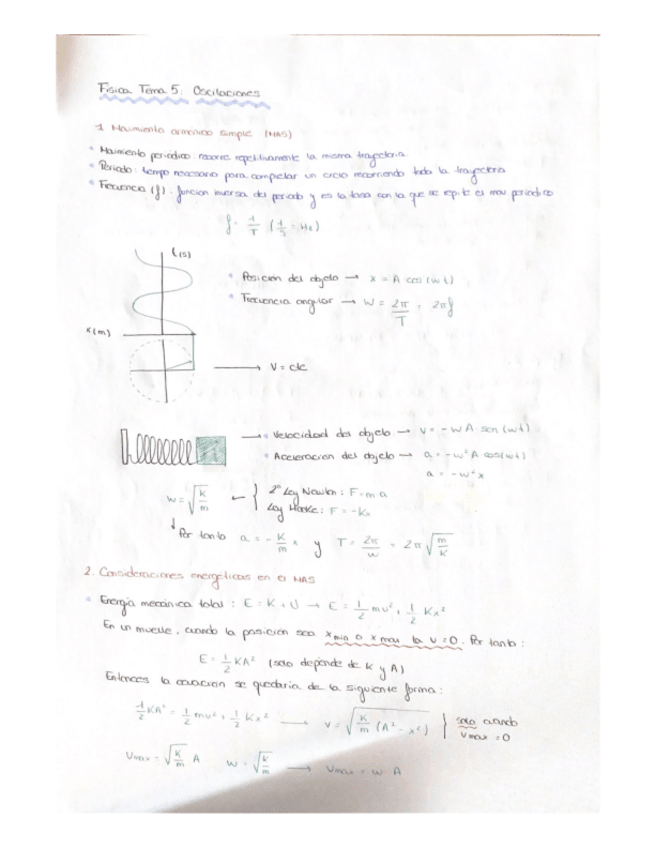 Fisica Tema 5: Oscilaciones
1 Movimiento armónico simple (MAS)
• Movimiento periodico: recorre repetitivamente la misma trayectoria.
• Periodo: tiempo necesario para completar un ciclo recorriendo toda la trayectoria
• Frecuencia (f): funcion inversa del periodo y es la tasa con la que se repite el mov periodico
f = 1/T (1/s = Hz)
t(s)
• Posición del objeto → x = A cos(wt)
• Frecuencia angular → W = 2π/T = 2πf
x(m)
→ V = cte
→ • Velocidad del objeto → v = -wA sen(wt)
• Aceleración del objeto → a = -w²A cos(wt)
a = -w²x
w = √k/m ← { 2ª Ley Newton: F = m·a
Ley Hooke: F = -Kx
↓ Por tanto a = -K/m x y T = 2π/w = 2π √m/K
2. Consideraciones energéticas en el MAS
• Energía mecánica total: E = K + U → E = 1/2 mv² + 1/2 Kx²
En un muelle, cuando la posición sea xmin o xmax la v=0. Por tanto:
E = 1/2 KA² (solo depende de K y A)
Entonces la ecuación se quedaria de la siguiente forma:
1/2 KA² = 1/2 mv² + 1/2 Kx² → v = √K/m (A² - x²) } solo cuando
Vmax = 0
Vmax = √K/m A W = √K/m → Vmax = w A